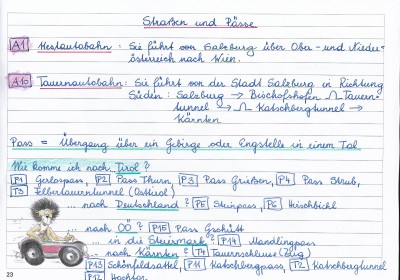 Straßen und Pässe
A1 Westautobahn : Sie führt von Salzburg über Ober- und Nieder-
österreich nach Wien.
A10 Tauernautobahn : Sie führt von der Stadt Salzburg in Richtung
Süden : Salzburg → Bischofshofen Tauern-
tunnel → Katschbergtunnel →
Kärnten
Pass = Übergang über ein Gebirge oder Engstelle in einem Tal
Wie komme ich nach Tirol ?
P1 Gerlospass, P2 Pass Thurn, P3 Pass Grießen, P4 Pass Strub,
T3 Felbertauerntunnel (Osttirol)
... nach Deutschland ? P5 Steinpass, P6 Hirschbichl
... nach OÖ ? P15 Pass Gschütt
... in die Steiermark ? P14 Mandlingpass
... nach Kärnten ? T4 Tauernschleuse (Zug)
P13 Schönfeldsattel, P11 Katschbergpass, T2 Katschbergtunnel
P12 Hochtor
23